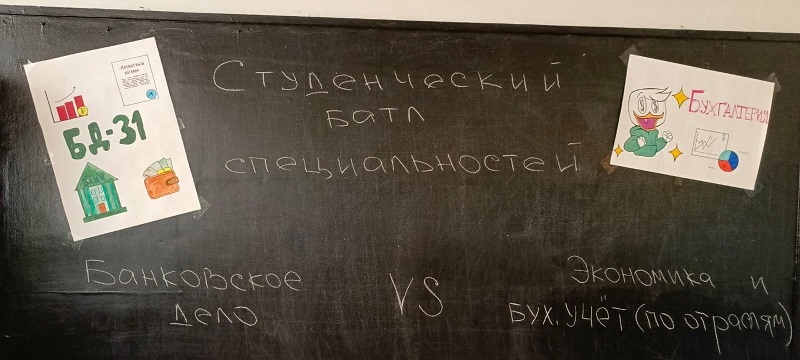 Студенческий
батл
специальностей
БД-31
БУХГАЛТЕРИЯ
Банковское
дело
VS
Экономика и
бух. учёт (по отраслям)